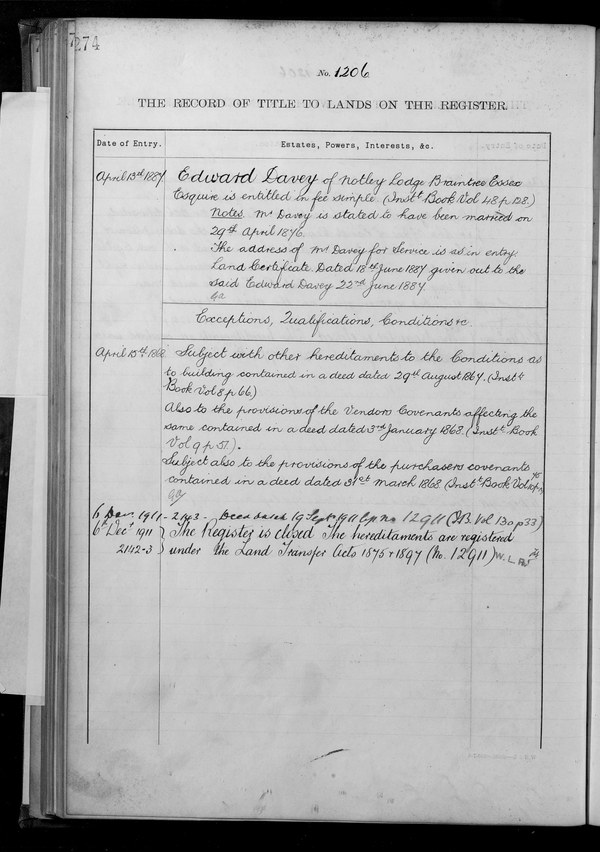 274
No. 1206
THE RECORD OF TITLE TO LANDS ON THE REGISTER.
Date of Entry.
Estates, Powers, Interests, &c.
April 13th 1887
Edward Davey of Notley Lodge Braintree Essex
Esquire is entitled in fee simple. (Instt Book Vol 48 p 128.)
Notes. Mr Davey is stated to have been married on
29th April 1876.
The address of Mr Davey for Service is as in entry.
Land Certificate. Dated 18th June 1887 given out to the
said Edward Davey 22nd June 1887
Exceptions, Qualifications, Conditions &c.
April 15th 1868
Subject with other hereditaments to the Conditions as
to building contained in a deed dated 29th August 1867. (Instt
Book Vol 8 p 66.)
Also to the provisions of the Vendors Covenants affecting the
same contained in a deed dated 3rd January 1868. (Instt Book
Vol 9 p 51.).
Subject also to the provisions of the purchasers covenants
contained in a deed dated 31st March 1868 (Instt Book Vol
6 Dec. 1911 - 2143 - Deed dated 19 Sept 1911 12911 (I.B. Vol 130 p 33)
6th Decr 1911 } The Register is closed The hereditaments are registered
2142-3 } under the Land Transfer Acts 1875 & 1897 (No. 12911) W. L. R.